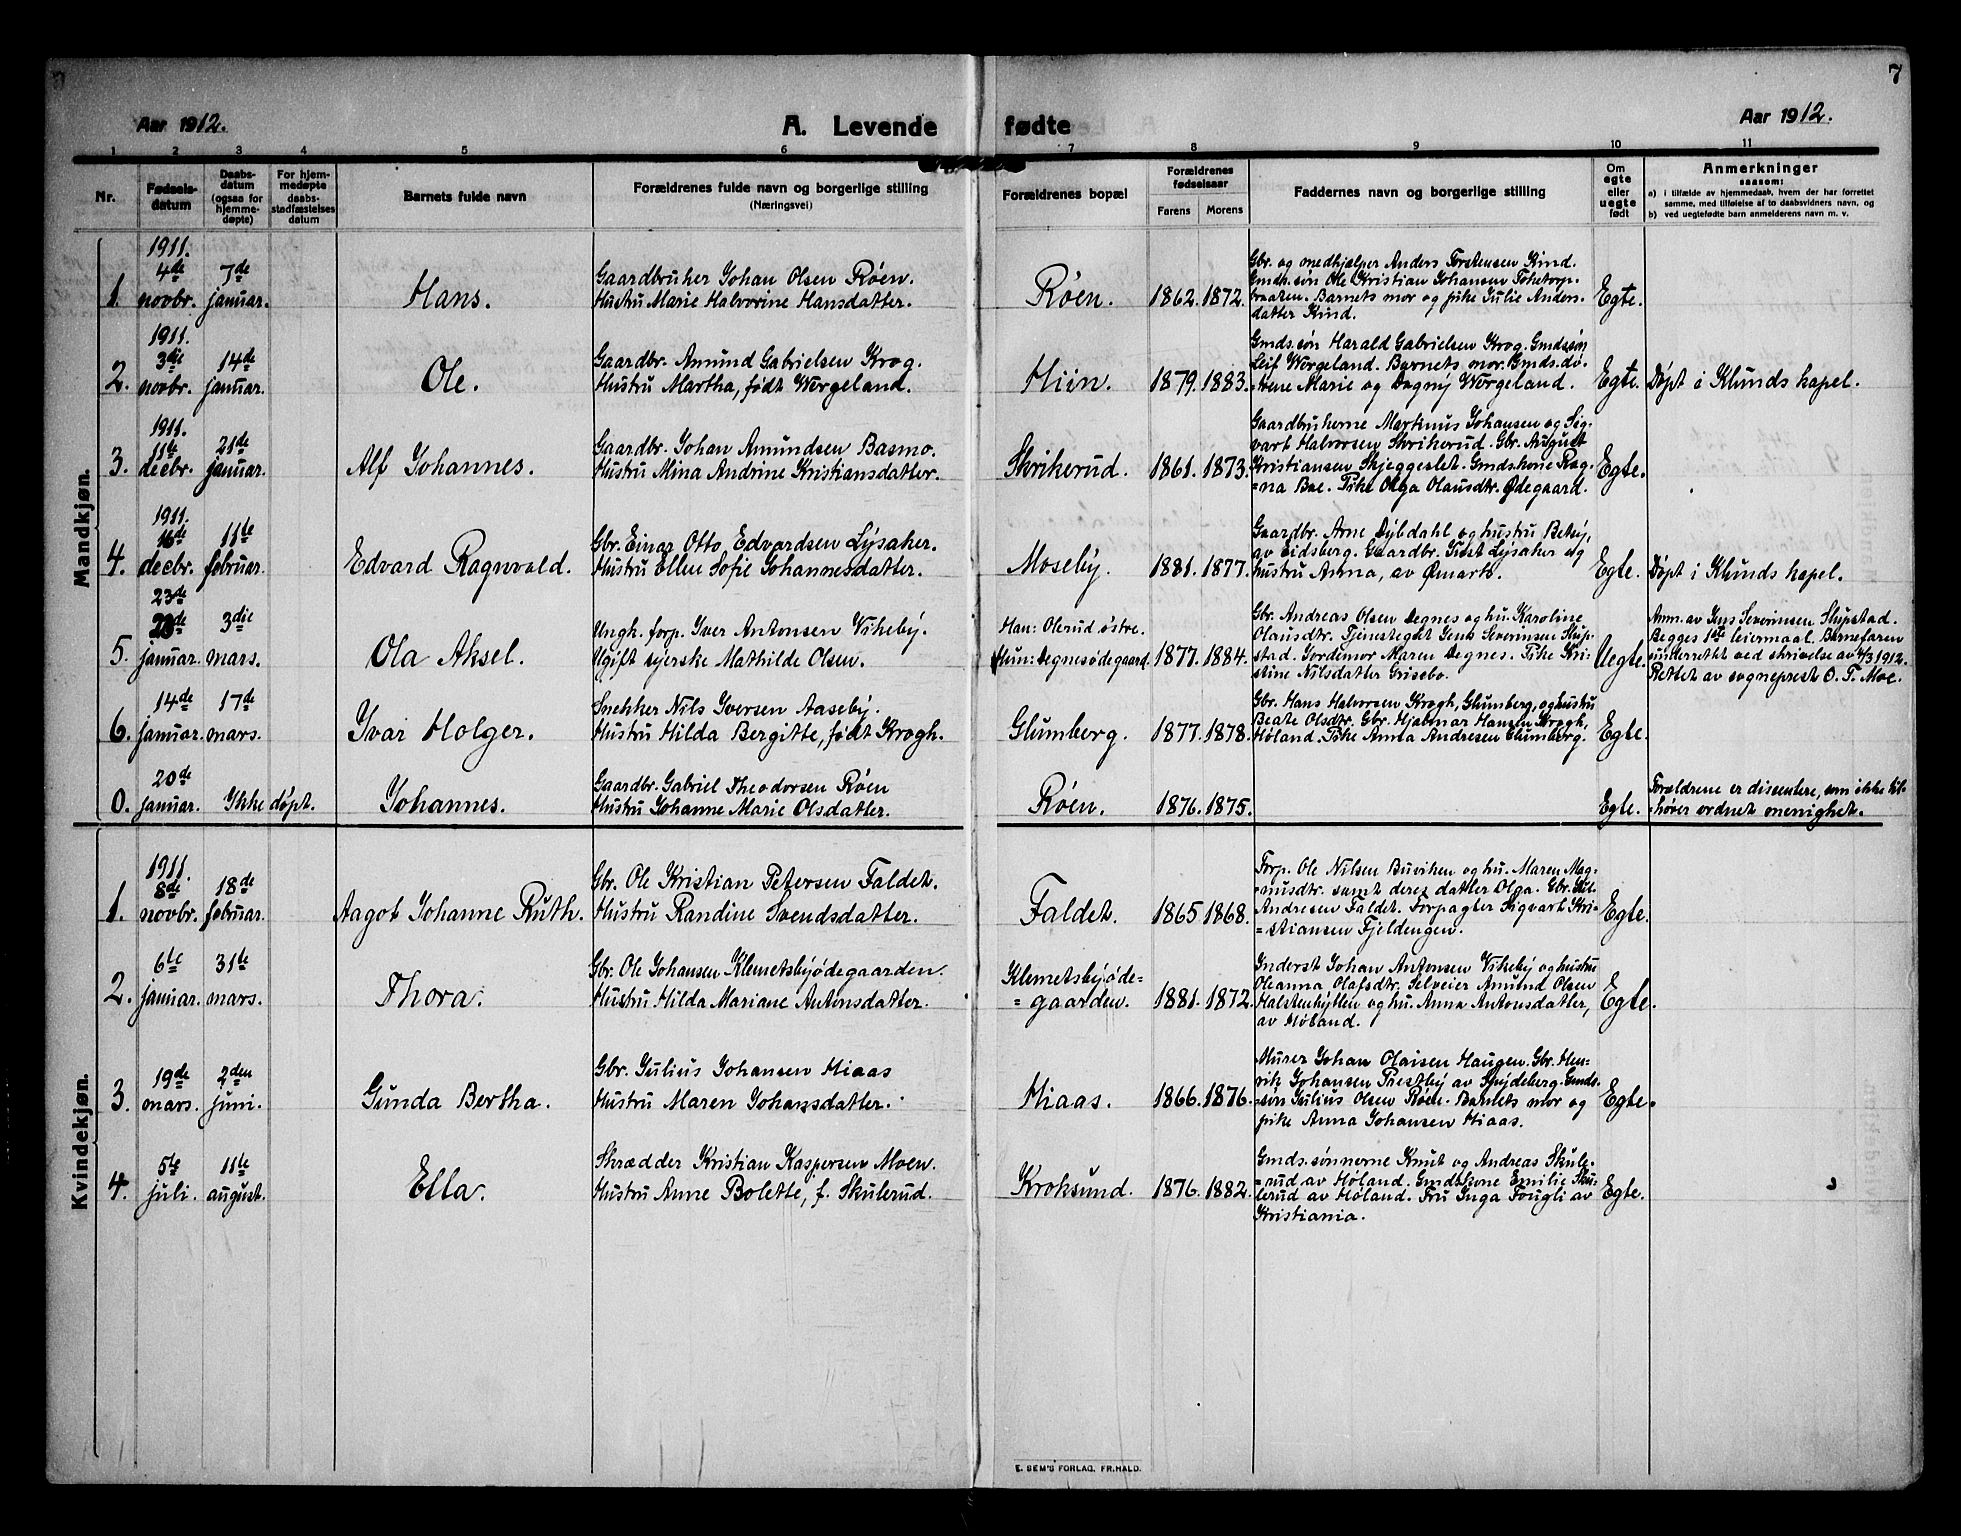 7
Aar 1912.
A. Levende fødte
Aar 1912.
1 2 3 4 5 6 7 8 9 10 11
Nr.
Fødsels-
datum
Daabs-
datum
(ogsaa for
hjemme-
døpte)
For hjem-
medøpte
daabs-
stadfæstelses
datum
Barnets fulde navn
Forældrenes fulde navn og borgerlige stilling
(Næringsvei)
Forældrenes bopæl
Forældrenes
fødselsaar
Farens Morens
Faddernes navn og borgerlige stilling
Om
egte
eller
uegte
født
Anmerkninger
saasom:
a) i tilfælde av hjemmedaab, hvem der har forrettet
samme, med tilføielse af to daabsvidners navn, og
b) ved uegtefødte barn anmelderens navn m. v.
Mandkjøn.
1.
1911.
4de
novbr.
7de
januar.
Hans.
Gaardbruker Johan Olsen Røen.
Hustru Marie Halvorine Hansdatter.
Røen.
1862. 1872.
Gbr. og medhjælper Anders Torstensen Kind.
Gmds. søn Ole Kristian Johansen Toketorp-
braaten. Barnets mor og pike Julie Anders-
datter Kind.
Egte.
2.
1911.
3die
novbr.
14de
januar.
Ole.
Gaardbr. Amund Gabrielsen Krog.
Hustru Martha, født Wergeland.
Hiin.
1879. 1883.
Gmds. søn Harald Gabrielsen Krog. Gmds søn
Leif Wergeland. Barnets mor. Gmds. dø-
trene Marie og Dagny Wergeland.
Egte.
Døpt i Klunds kapel.
3.
1911.
11te
decbr.
21de
januar.
Alf Johannes.
Gaardbr. Johan Amundsen Basmo.
Hustru Mina Andrine Kristiansdatter.
Skrikerud.
1861. 1873.
Gaardbrukerne Markus Johansen og Sig-
vart Halvorsen Skrikerud. Gbr. August
Kristiansen Skjeggeslet. Gmdskone Rag-
=na Boe. Pike Olga Olausdtr. Ødegaard.
Egte.
4.
1911.
16de
decbr.
11te
februar.
Edvard Ragnvald.
Gbr. Einar Otto Edvardsen Lysaker.
Hustru Ellen Sofie Johannesdatter.
Moseby.
1881. 1877.
Gaardbr. Arne Dybdahl og hustru Betsy,
av Eidsberg. Gaardbr. Lysaker og
hustru Anna, av Ømark.
Egte.
Døpt i Klunds kapel.
5.
23de
januar.
3die
mars.
Ola Aksel.
Ungk. forp. Iver Antonsen Vikeby.
Ugift syerske Mathilde Olsen.
Han: Olerud østre.
Hun: Degnesødegaard.
1877. 1884.
Gbr. Andreas Olsen Degnes og hu. Karoline
Olausdtr. Tjenestegut Jens Severinsen Slup-
stad. Jordemor Maren Degnes. Pike Kri-
stine Nilsdatter Grisebo.
Uegte.
Anm. av Jens Severinsen Slupstad.
Begges 1ste leiermaal. Barnefaren
underrettet ved skrivelse av 4/3 1912.
Rettet av sogneprest O. T. Moe.
6.
14de
januar.
17de
mars.
Ivar Holger.
Snekker Nils Iversen Aaseby.
Hustru Hilda Bergitte, født Krogh.
Glumberg.
1877. 1878.
Gbr. Hans Halvorsen Krogh, Glumberg, og hustru
Beate Olsdtr. Gbr. Hjalmar Hansen Krogh,
Høland. Pike Anna Andresen Glumberg.
Egte.
0.
20de
januar.
Ikke døpt.
Johannes.
Gaardbr. Gabriel Theodorsen Røen
Hustru Johanne Marie Olsdatter.
Røen.
1876. 1875.
Egte.
Forældrene er dissentere, som ikke til-
=hører ordnet menighet.
Kvindekjøn.
1.
1911.
8de
novbr.
18de
februar.
Aagot Johanne Ruth.
Gbr. Ole Kristian Petersen Faldet.
Hustru Randine Svendsdatter.
Faldet.
1865. 1868.
Forp. Ole Nilsen Buviken og hu. Maren Mag-
=nusdtr. samt deres datter Olga. Gbr.
Andresen Faldet. Forpagter Sigvart Kri-
=stiansen Fjeldengen.
Egte.
2.
6te
januar.
31te
mars.
Thora.
Gbr. Ole Johansen Klemetsbyødegaarden.
Hustru Hilda Mariane Antonsdatter.
Klemetsbyøde-
=gaarden.
1881. 1872.
Inderst Johan Antonsen Vikeby og hustru
Oleanna Olafsdtr. Selveier Amund Olsen
Halstenhytten og hu. Anna Antonsdatter,
av Høland.
Egte.
3.
19de
mars.
2den
juni.
Gunda Bertha.
Gbr. Julius Johansen Hiaas
Hustru Maren Johansdatter.
Hiaas.
1866. 1876.
Murer Johan Olaisen Haugen. Gbr. Hen-
rik Johansen Prestby av Spydeberg. Gmds.-
søn Julius Olsen Røen. Barnets mor og
pike Anna Johansen Hiaas.
Egte.
4.
5te
juli.
11te
august.
Ella.
Skrædder Kristian Kaspersen Moen.
Hustru Anne Bolette, f. Skulerud.
Kroksund.
1876. 1882.
Gmds. sønnerne Knut og Andreas Skule-
=rud av Høland. Gmdskone Emilie Sku-
lerud av Høland. Fru Inga Fougli av
Kristiania.
Egte.
E. SEM'S FORLAG, FR.HALD.